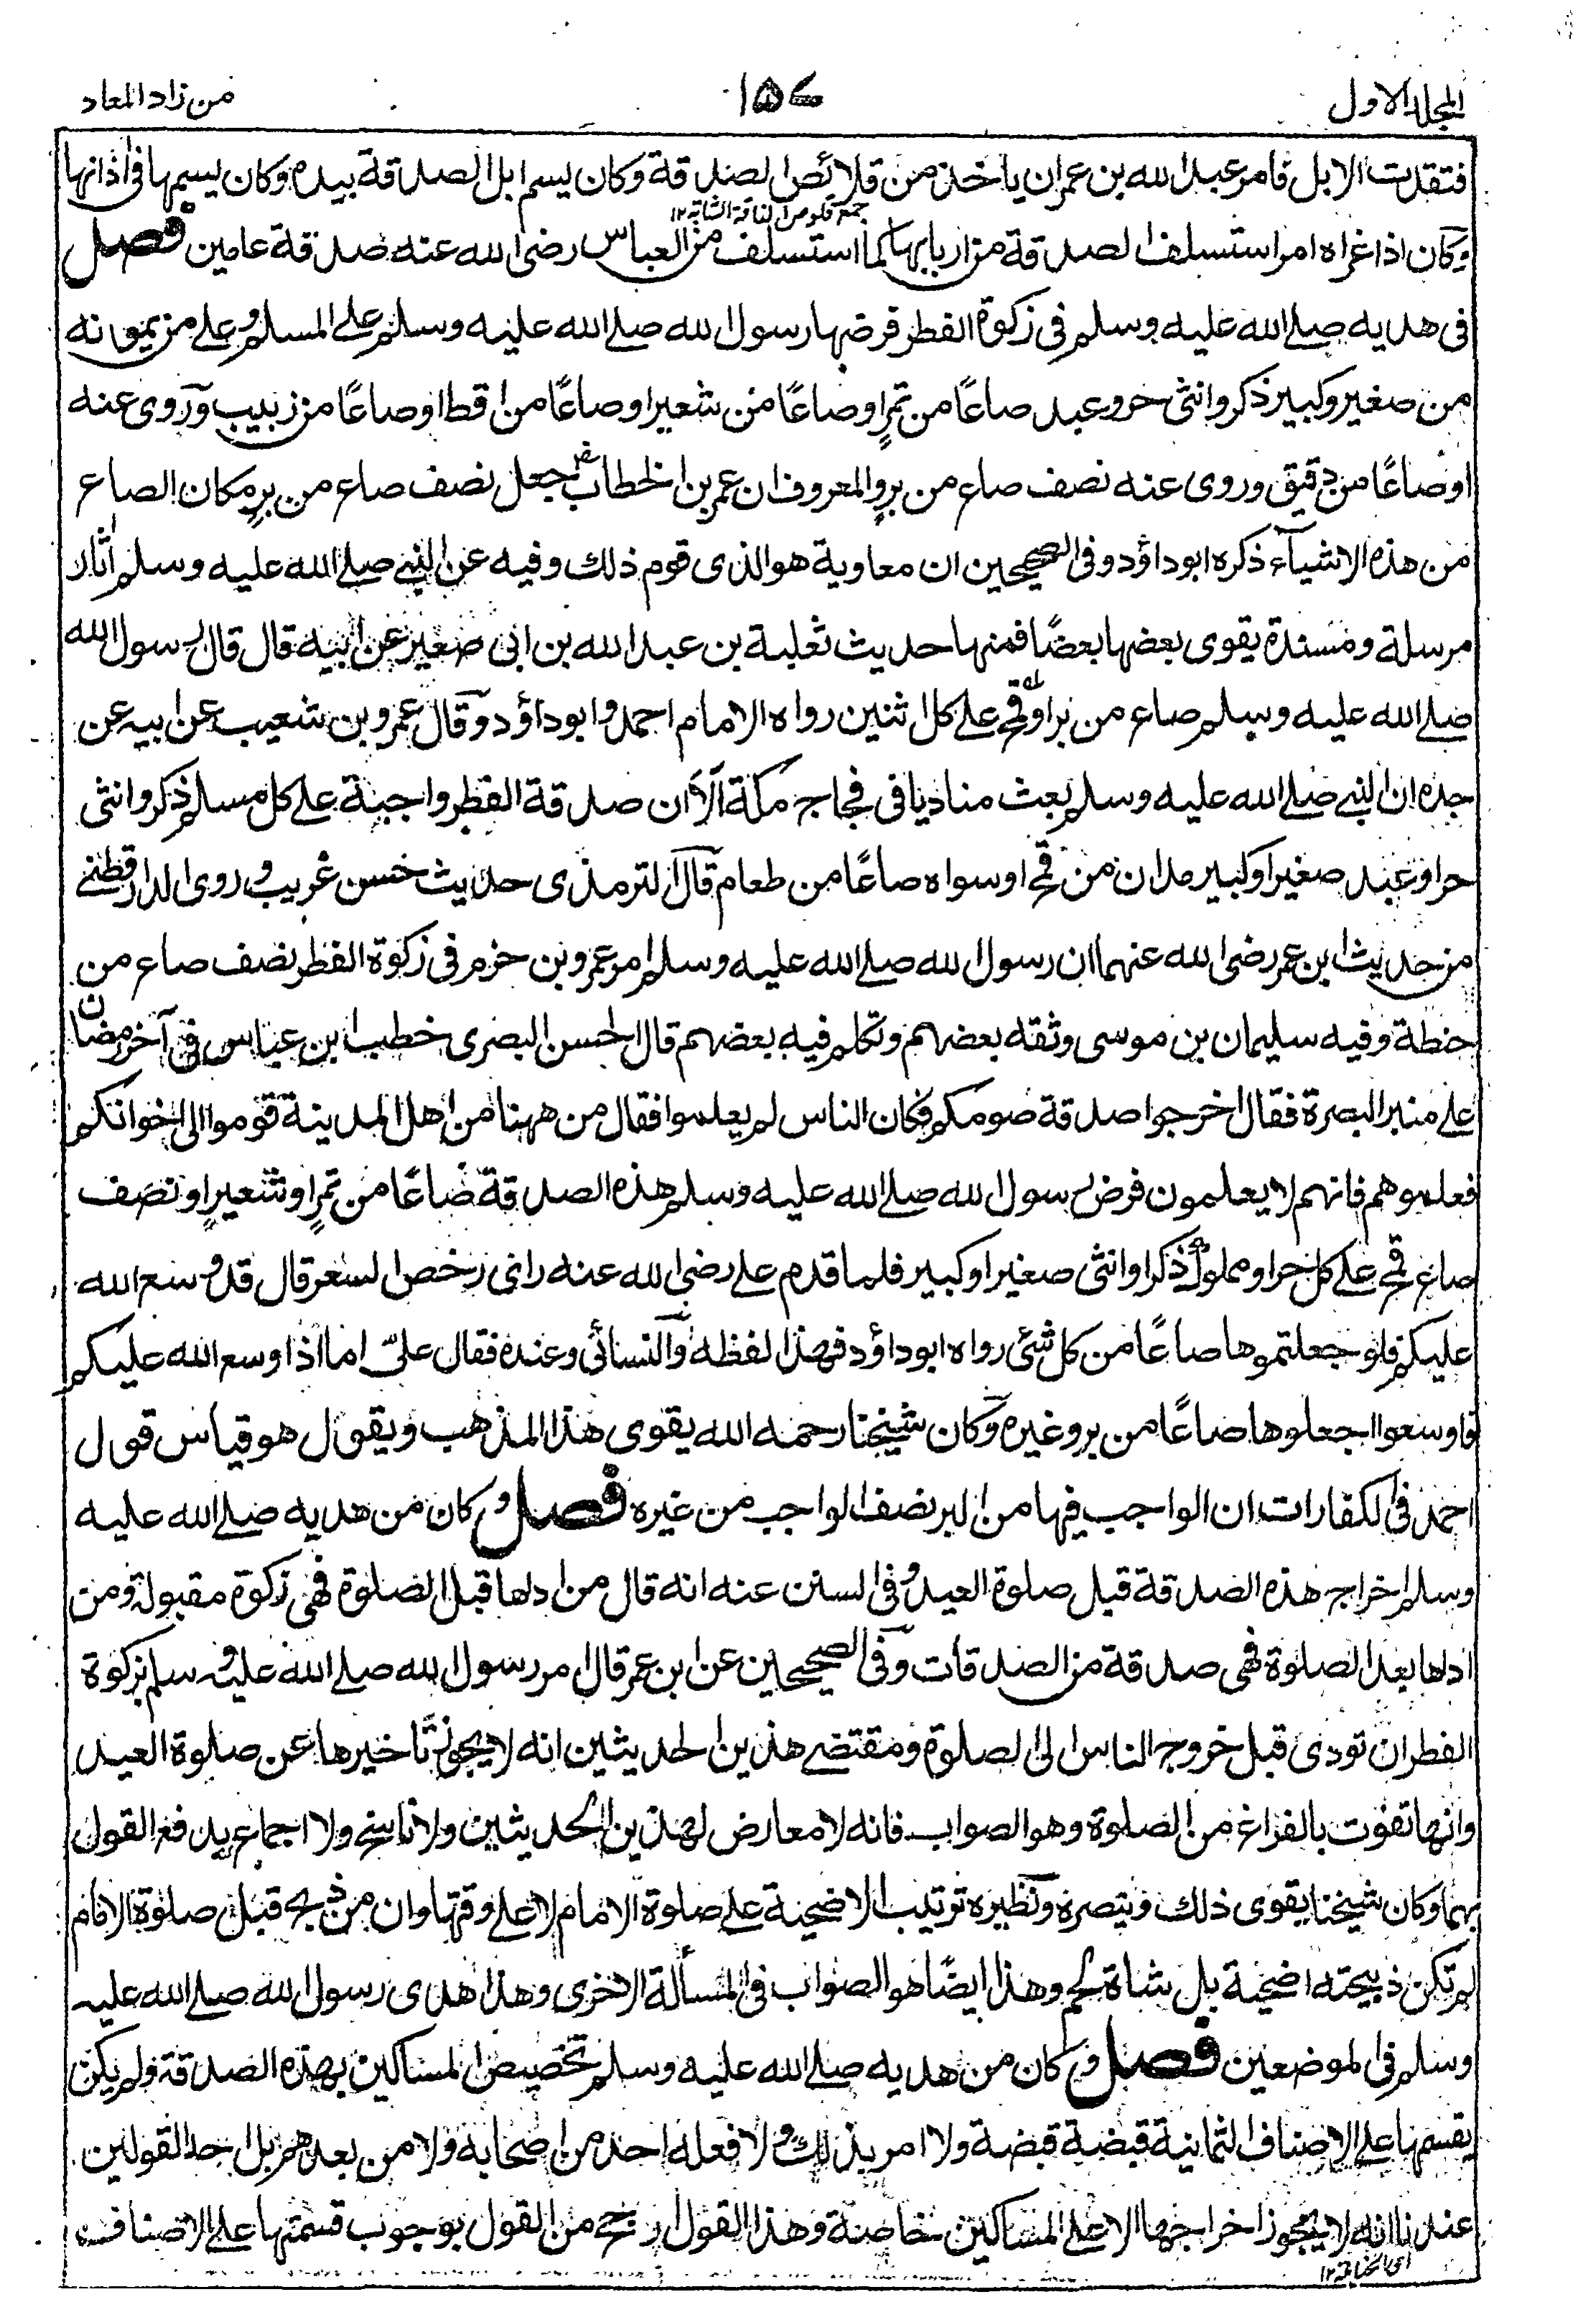 المجلد الاول ١٥٧ من زاد المعاد
فتقدت الابل فامر عبد الله بن عمر ان ياخذ من قلائص الصدقة وكان يسم ابل الصدقة بيده وكان يسمها فى اذانها
جمع قلوص الناقة الشابة ١٢
وكان اذا عراه امر استسلف الصدقة من اربابها كما استسلف من العباس رضى الله عنه صدقة عامين فصل
فى هديه صلے الله عليه وسلم فى زكوة الفطر فرضها رسول الله صلے الله عليه وسلم علے المسلم وعلے من يمونه
من صغير وكبير ذكر وانثى حر وعبد صاعًا من تمرٍ او صاعًا من شعير او صاعًا من اقط او صاعًا من زبيب وروى عنه
او صاعًا من دقيق وروى عنه نصف صاع من برٍ والمعروف ان عمر بن الخطاب جعل نصف صاع من برٍ مكان الصاع
من هذه الاشياء ذكره ابوداؤد وفى الصحيحين ان معاوية هو الذى قوم ذلك وفيه عن النبے صلے الله عليه وسلم اٰثار
مرسلة ومسندة يقوى بعضها بعضًا فمنها حديث ثعلبة بن عبد الله بن ابى صغير عن ابيه قال قال رسول الله
صلے الله عليه وسلم صاع من بر او قمح علے كل اثنين رواه الامام احمد وابوداؤد وقال عمرو بن شعيب عن ابيه عن
جده ان النبے صلے الله عليه وسلم بعث مناديا فى فجاج مكة اَلاَ ان صدقة الفطر واجبة علے كل مسلم ذكر وانثى
حر او عبد صغير او كبير مدان من قمح او سواه صاعًا من طعام قال الترمذى حديث حسن غريب وروى الدارقطنے
من حديث ابن عمر رضى الله عنهما ان رسول الله صلے الله عليه وسلم امر عمرو بن حزم فى زكوة الفطر نصف صاع من
حنطة وفيه سليمان بن موسى وثقه بعضهم وتكلم فيه بعضهم قال الحسن البصرى خطب ابن عباس فى آخر رمضان
علے منبر البصرة فقال اخرجوا صدقة صومكم فكان الناس لم يعلموا فقال من ههنا من اهل المدينة قوموا الى اخوانكم
فعلموهم فانهم لا يعلمون فرض رسول الله صلے الله عليه وسلم هذه الصدقة صاعًا من تمرٍ او شعيرٍ او نصف
صاع قمح علے كل حر او مملوك ذكر او انثى صغير او كبير فلما قدم على رضى الله عنه راى رخص السعر قال قد وسع الله
عليكم فلو جعلتموها صاعًا من كل شئ رواه ابوداؤد فهذا لفظه والنسائى وعنده فقال علىّ اما اذا وسع الله عليكم
فاوسعوا اجعلوها صاعًا من بر وغيره وكان شيخنا رحمه الله يقوى هذا المذهب ويقول هو قياس قول
احمد فى الكفارات ان الواجب فيها من البر نصف الواجب من غيره فصل وكان من هديه صلے الله عليه
وسلم اخراج هذه الصدقة قبل صلوة العيد وفى السنن عنه انه قال من اداها قبل الصلوة فهى زكوة مقبولة ومن
اداها بعد الصلوة فهى صدقة من الصدقات وفى الصحيحين عن ابن عمر قال امر رسول الله صلے الله عليه وسلم بزكوة
الفطر ان تودى قبل خروج الناس الى الصلوة ومقتضے هذين الحديثين انه لا يجوز تاخيرها عن صلوة العيد
وانها تفوت بالفراغ من الصلوة وهو الصواب فانه لا معارض لهذين الحديثين ولا ناسخ ولا اجماع يدفع القول
بهما وكان شيخنا يقوى ذلك وينصره ونظيره ترتيب الاضحية علے صلوة الامام لا علے وقتها وان من ذبح قبل صلوة الامام
لم تكن ذبيحته اضحية بل شاة لحم وهذا ايضًا هو الصواب فى المسألة الاخرى وهذا هدى رسول الله صلے الله عليه
وسلم فى الموضعين فصل وكان من هديه صلے الله عليه وسلم تخصيص المساكين بهذه الصدقة ولم يكن
يقسمها علے الاصناف الثمانية قبضة قبضة ولا امر بذلك ولا فعله احد من اصحابه ولا من بعدهم بل احد القولين
عندنا انه لا يجوز اخراجها الا علے المساكين خاصة وهذا القول ارجح من القول بوجوب قسمتها علے الاصناف